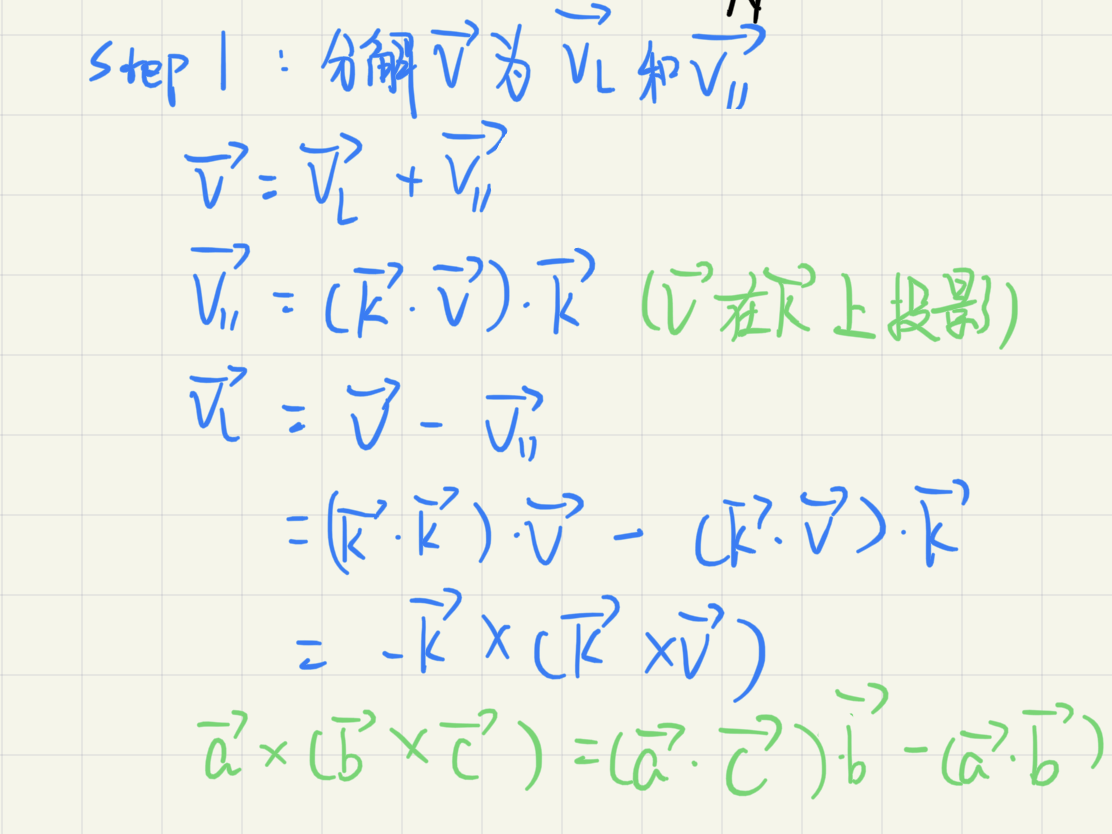 Step 1 : 分解 $\vec{V}$ 为 $\vec{V_\perp}$ 和 $\vec{V_{//}}$
$\vec{V} = \vec{V_\perp} + \vec{V_{//}}$
$\vec{V_{//}} = (\vec{k} \cdot \vec{V}) \cdot \vec{k}$ ($\vec{V}$ 在 $\vec{k}$ 上投影)
$\vec{V_\perp} = \vec{V} - \vec{V_{//}}$
$= (\vec{k} \cdot \vec{k}) \cdot \vec{V} - (\vec{k} \cdot \vec{V}) \cdot \vec{k}$
$= -\vec{k} \times (\vec{k} \times \vec{V})$
$\vec{a} \times (\vec{b} \times \vec{c}) = (\vec{a} \cdot \vec{c}) \vec{b} - (\vec{a} \cdot \vec{b})$